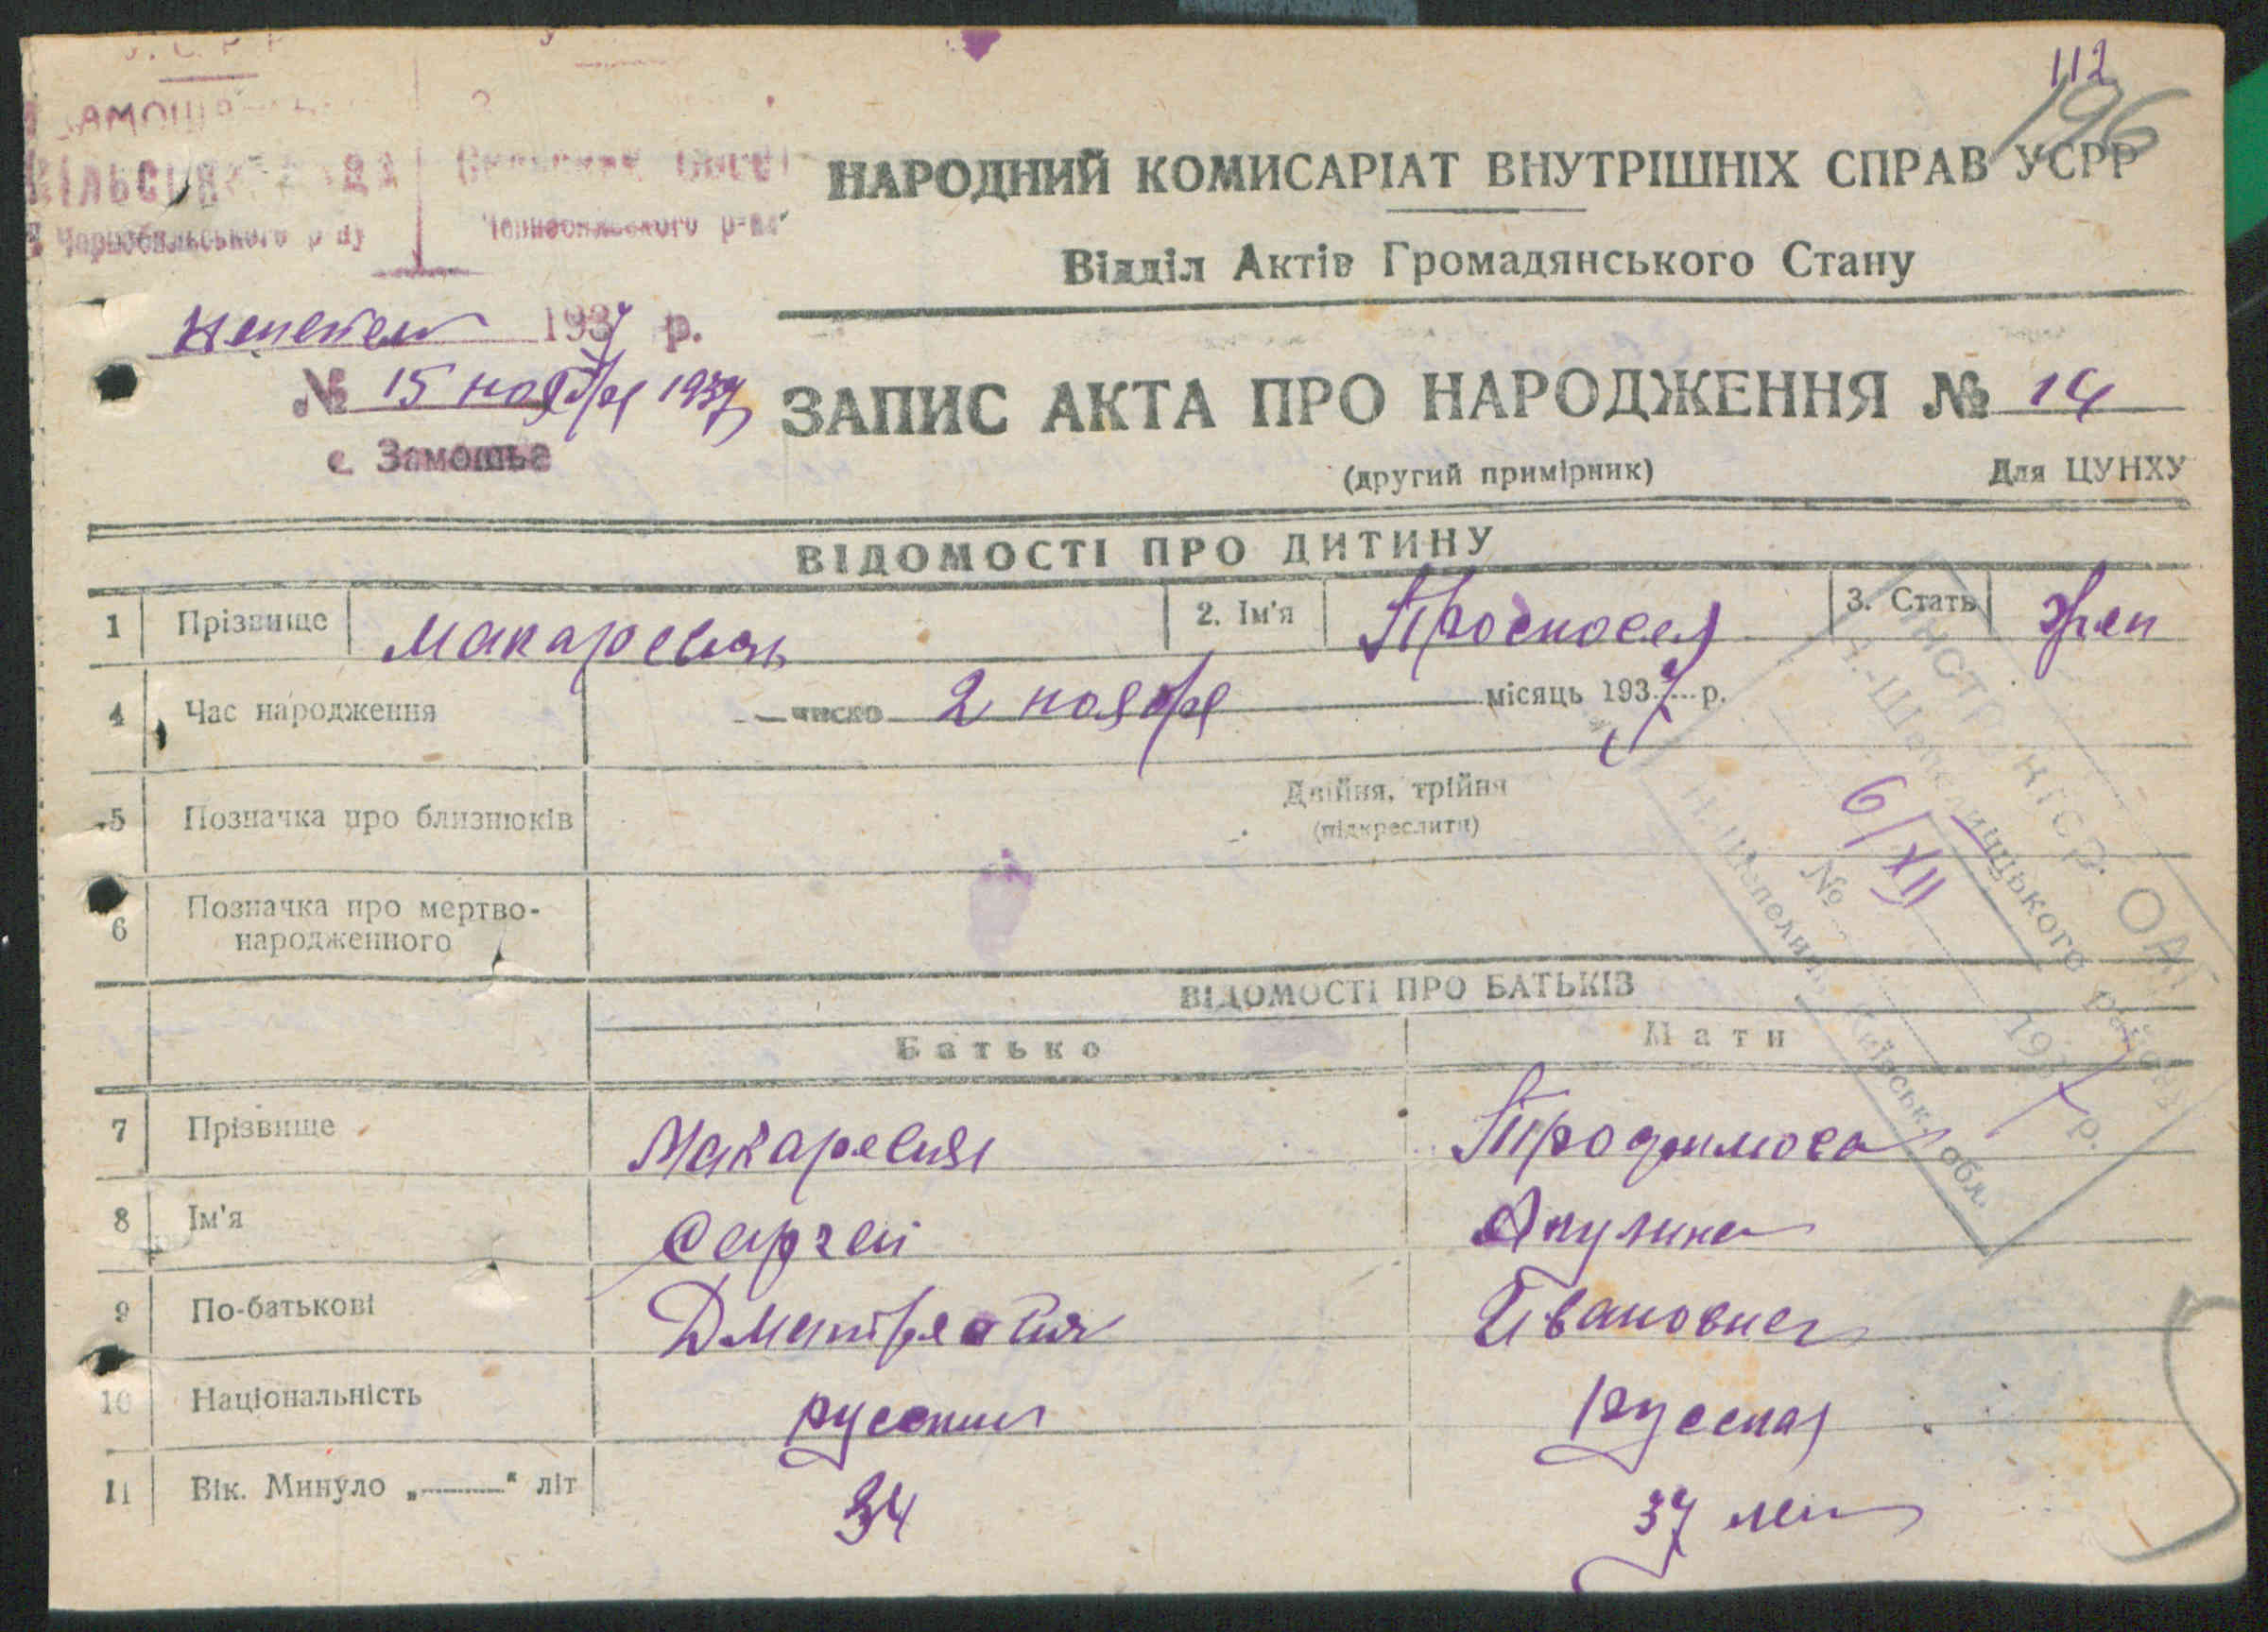 112
196
СІЛЬСЬКА РАДА
Чорнобильського р-ну
Чернобыльского р-на
НАРОДНИЙ КОМИСАРІАТ ВНУТРІШНІХ СПРАВ УСРР
Відділ Актів Громадянського Стану
1937 р.
№ 15 ноября 1937
с. Замошьа
ЗАПИС АКТА ПРО НАРОДЖЕННЯ № 14
(другий примірник) Для ЦУНХУ
ВІДОМОСТІ ПРО ДИТИНУ
1 Прізвище Макаревич 2. Ім'я 3. Стать жен
4 Час народження число 2 ноября місяць 1937 р.
5 Позначка про близнюків Двійня, трійня
(підкреслити)
6 Позначка про мертво-
народженного
ВІДОМОСТІ ПРО БАТЬКІВ
Батько Мати
7 Прізвище Макаревич
8 Ім'я Сергей Акулина
9 По-батькові Ивановна
10 Національність русский русская
11 Вік. Минуло „——“ літ 34 37 лет
№ 6/XII 1937 р.